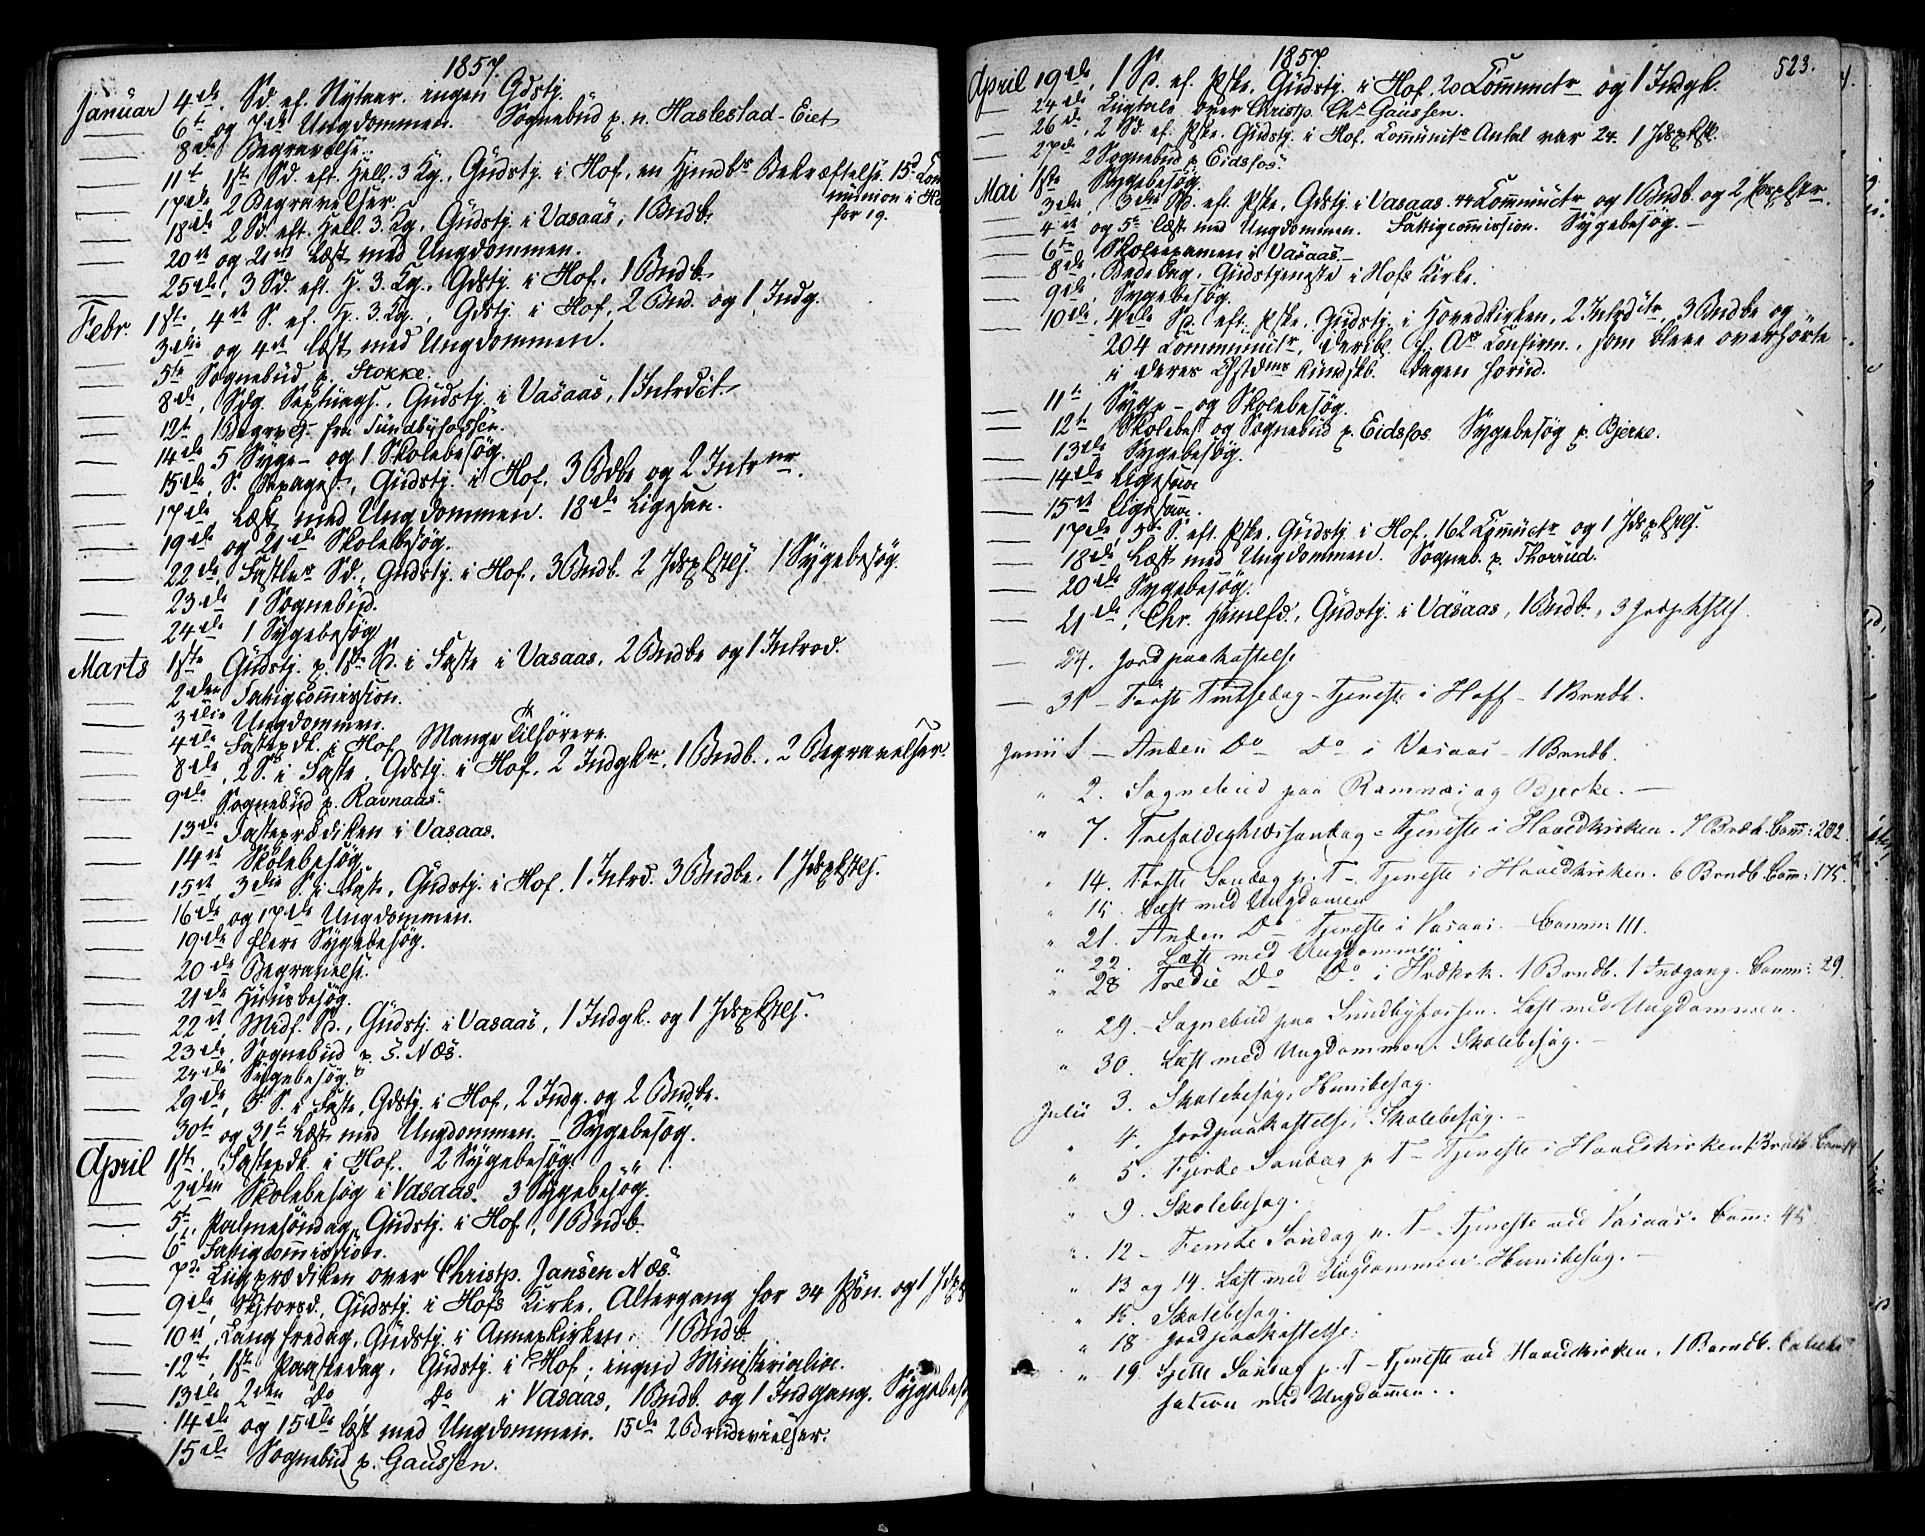 1857.
Januar 4de, Sd. ef. Nytaar. ingen Gdstj.
6t og 7de Ungdommen. Sognebud p. n. Haslestad-Eiet
8de Begravelse.
11te 1ste Sd. eft. Hell. 3 Kg., Gudstj. i Hof, en Hjemdbs Bekræftelse. 15d Com
munion i Hof
for 19.
17de 2 Begravelser.
18de 2 Sd. eft. Hell. 3. Kg, Gudstj. i Vasaas, 1 Bndb.
20de og 21de Læst med Ungdommen.
25de, 3 Sd. eft. H. 3. Kg., Gdstj. i Hof, 1 Bndb.
Febr. 1ste, 4de S. ef. H. 3. Kg., Gdstj. i Hof, 2 Bnd. og 1 Indg.
3die og 4de læst med Ungdommen.
5te Sognebud p. Stokke.
8de, Sdg. Septuags., Gudstj. i Vasaas, 1 Introdct.
12te, 1 Begrvels. fra Sundbyfossen.
14de 5 Syge- og 1 Skolebesög.
15de, S. Sexages., Gudstj. i Hof, 3 Bdbe og 2 Intr
17de Læst med Ungdommen. 18de Ligesaa.
19de og 21de Skolebesög.
22de, Fastlvs Sd., Gudstj. i Hof, 3 Bndb. 2 Jdspkstls. 1 Sygebesög.
23de 1 Sognebud.
24de 1 Sygebesög
Marts 1ste Gudstj. p. 1ste Sd. i Faste i Vasaas, 2 Bndbe og 1 Introd.
2den Fattigcommission.
3die Ungdommen.
4de Fastepdk. i Hof. Mange Tilhörere.
8de, 2 S. i Faste, Gdstj. i Hof, 2 Indgkr, 1 Bndb., 2 Begravelser.
9de Sognebud p. Ravnaas.
13de Fasteprædiken i Vasaas.
14de Skolebesög
15de 3die S. i Faste, Gudstj. i Hof, 1 Intrd. 3 Bndbe, 1 Jdspkstls.
16de og 17de Ungdommen.
19de flere Sygebesög.
20de Begravelse.
21de Huusbesög.
22de Midf. Sd., Gudstj. i Vasaas, 1 Indgk. og 1 Jdspkstls.
23de, Sognebud p. S. Næs.
24de Sygebesög.
29de, 5 S. i Faste, Gdstj. i Hof, 2 Indg. og 2 Bndbe.
30te og 31te Læst med Ungdommen. Sygebesög.
April 1ste Fastepdk. i Hof. 2 Sygebesög.
2den Skolebesög i Vasaas. 3 Sygebesög.
5te, Palmesöndag, Gudstj. i Hof, 1 Bndb.
6te Fattigcommission.
7de Liigprædiken over Christp. Jansen Næs.
9de, Skjtorsd, Gudstj. i Hofs Kirke, Altergang for 34 Psön. og 1 Jdsp
10de, Langfredag, Gudstj. i Annexkirken, 1 Bndb.
12te, 1ste Paaskedag, Gudstj. i Hof; ingen Ministerialia.
13de 2den Do, Do i Vasaas, 1 Bndb. og 1 Indgang. Sygebesög
14de og 15de læst med Ungdommen. 15de 2 Brudevielser.
15de Sognebud p. Gaussen.
1857. 523.
April 19de, 1 Sd. ef. Pske, Gudstj. i Hof, 20 Communctr og 1 Indgk.
24de Liigtale over Christp. Chr Gaussen.
26de, 2 Sd. ef. Pske, Gudstj. i Hof, Communits Antal var 24. 1 Jdspkstl.
27de 2 Sognebud p. Eidsfos.
Mai 1ste Sygebesög.
3die, 3die Sd. eft. Pske, Gdstj. i Vasaas. 44 Communctr og 1 Bndb. og 2 Jdspkstr.
4de og 5te læst med Ungdommen. Fattigcommission. Sygebesög.
6te Skoleexamen i Vasaas.
8de, Bededag, Gudstjeneste i Hofs Kirke.
9de, Sygebesög.
10de, 4de Sd. eft. Pske, Gudstj. i Hovedkirken, 2 Introdctr, 3 Bndbe og
204 Communictr, deribl. f. As Confirm., som bleve overhörte
i deres Kundskb. Dagen forud.
11te Syge- og Skolebesög.
12te Skolebes og Sognebud p. Eidsfos. Sygebesög p. Bjerke.
13de Sygebesög.
14de Ligesaa
15de Ligesaa.
17de, 5te S. eft. Pske, Gudstj. i Hof, 162 Commctr og 1 Jdspkstls.
18de Læst med Ungdommen. Sogneb. p. Thorrud.
20de Sygebesög.
21de, Chr. Himlfd., Gudstj. i Vasaas, 1 Bndb., 3 Jordpkstls.
24. Jordpaakastelse
31 - Første Pintsedag - Tjeneste i Hoff - 1 Brndb.
Junii 1 - Anden Do Do i Vasaas - 1 Brndb.
" 2. Sognebud paa Ramnæs og Bjerke.
" 7. Trefoldighedssøndag - Tjeneste i Hovedkirken. 7 Brdb. Comm: 202.
" 14. Første Søndag p. T - Tjeneste i Hovedkirken. 6 Brndb. Comm: 175.
" 15. Læst med Ungdommen
" 21. Anden Do Tjeneste i Vasaas. - Comm: 111.
" 22. Læst med Ungdommen
" 28 Tredie Do Do i Hvdkrk. 1 Brndb. 1 Indgang. Comm: 29.
" 29. - Sognebud paa Sundbyfossen. Læst med Ungdommen.
" 30. Læst med Ungdommen. Skolebesøg.
Julii 3. Skolebesøg, Huusbesøg.
" 4. Jordpaakastelse, Skolebesøg.
" 5. Fjerde Søndag p T - Tjeneste i Hovedkirken 1 Brndb Com
" 9. Skolebesøg.
" 12 - Femte Søndag p. T - Tjeneste ved Vasaas. Com: 45
" 13 og 14. Læst med Ungdommen. Huusbesøg.
" 15. Skolebesøg.
" 18 Jordpaakastelse.
" 19 Sjette Søndag p. T - Tjeneste ved Hovedkirken, 1 Barndb. Cateki-
sation med Ungdommen.